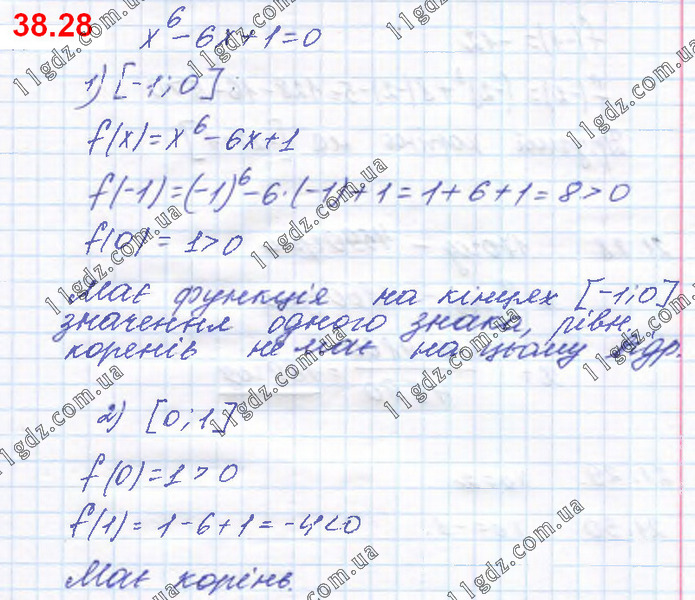 38.28
x⁶-6x+1=0
1) [-1;0].
f(x)=x⁶-6x+1
f(-1)=(-1)⁶-6·(-1)+1=1+6+1=8>0
f(0)=1>0
Має функція на кінцях [-1;0]
значення одного знака, рівн.
коренів не має на цьому відр.
2) [0;1]
f(0)=1>0
f(1)=1-6+1=-4<0
Має корінь.
11gdz.com.ua